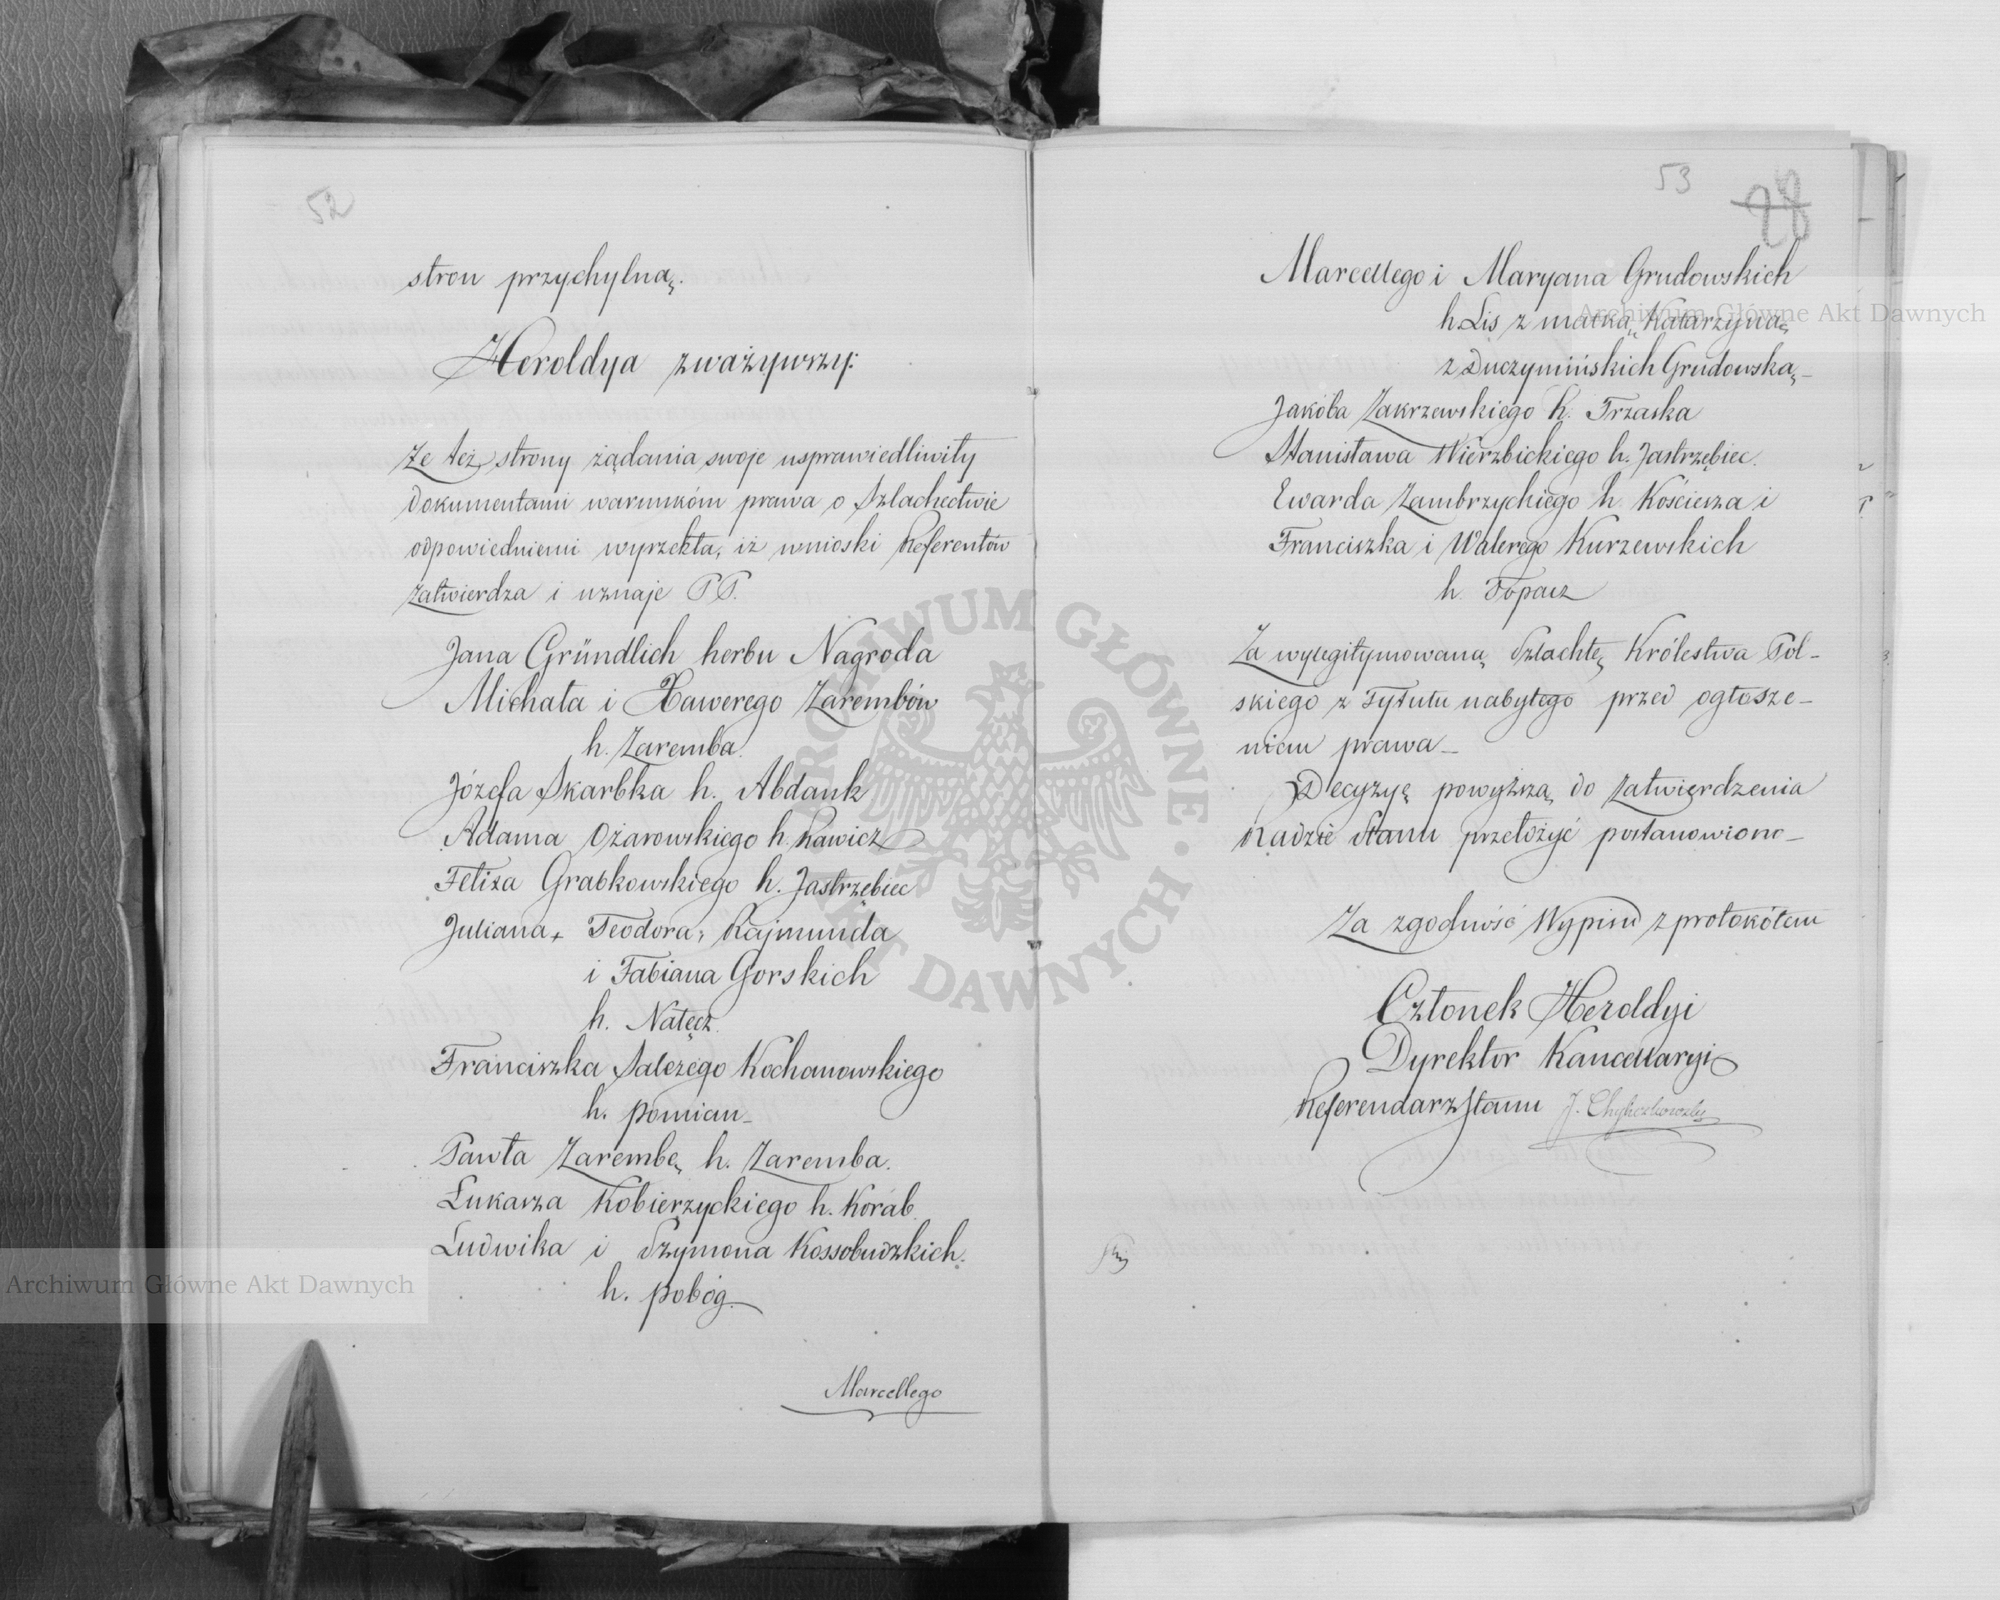 52
stron przychylną.
Heroldya zważywszy:
Że też strony żądania swoje usprawiedliwiły
dokumentami warunkom prawa o Szlachectwie
odpowiedniemi wyrzekła, iż wnioski Referentów
zatwierdza i uznaje PP.
Jana Gründlich herbu Nagroda
Michała i Xawerego Zarembów
h. Zaremba
Józefa Skarbka h. Abdank
Adama Ożarowskiego h. Rawicz
Felixa Grabkowskiego h. Jastrzębiec
Juliana, Teodora, Rajmunda
i Fabiana Gorskich
h. Nałęcz.
Franciszka Salezego Kochanowskiego
h. Pomian
Pawła Zarembę h. Zaremba.
Łukasza Kobierzyckiego h. Korab.
Ludwika i Szymona Kossobudzkich.
h. Pobóg.
Marcellego
53
28
Marcellego i Maryana Grudowskich
h. Lis z matką Katarzyną
z Duczymińskich Grudowską
Jakóba Zakrzewskiego h. Trzaska
Stanisława Wierzbickiego h. Jastrzębiec.
Ewarda Zambrzyckiego h. Kościesza i
Franciszka i Walerego Kurzewskich
h. Topacz
Za wylegitymowaną Szlachtę Królestwa Pol-
skiego z Tytułu nabytego przed ogłosze-
niem prawa
Decyzyę powyższą do zatwierdzenia
Radzie Stanu przełożyć postanowiono
Za zgodność Wypisu z protokółem
Członek Heroldyi
Dyrektor Kancellaryi
Referendarz Stanu J.
Archiwum Główne Akt Dawnych
Archiwum Główne Akt Dawnych
ARCHIWUM GŁÓWNE AKT DAWNYCH